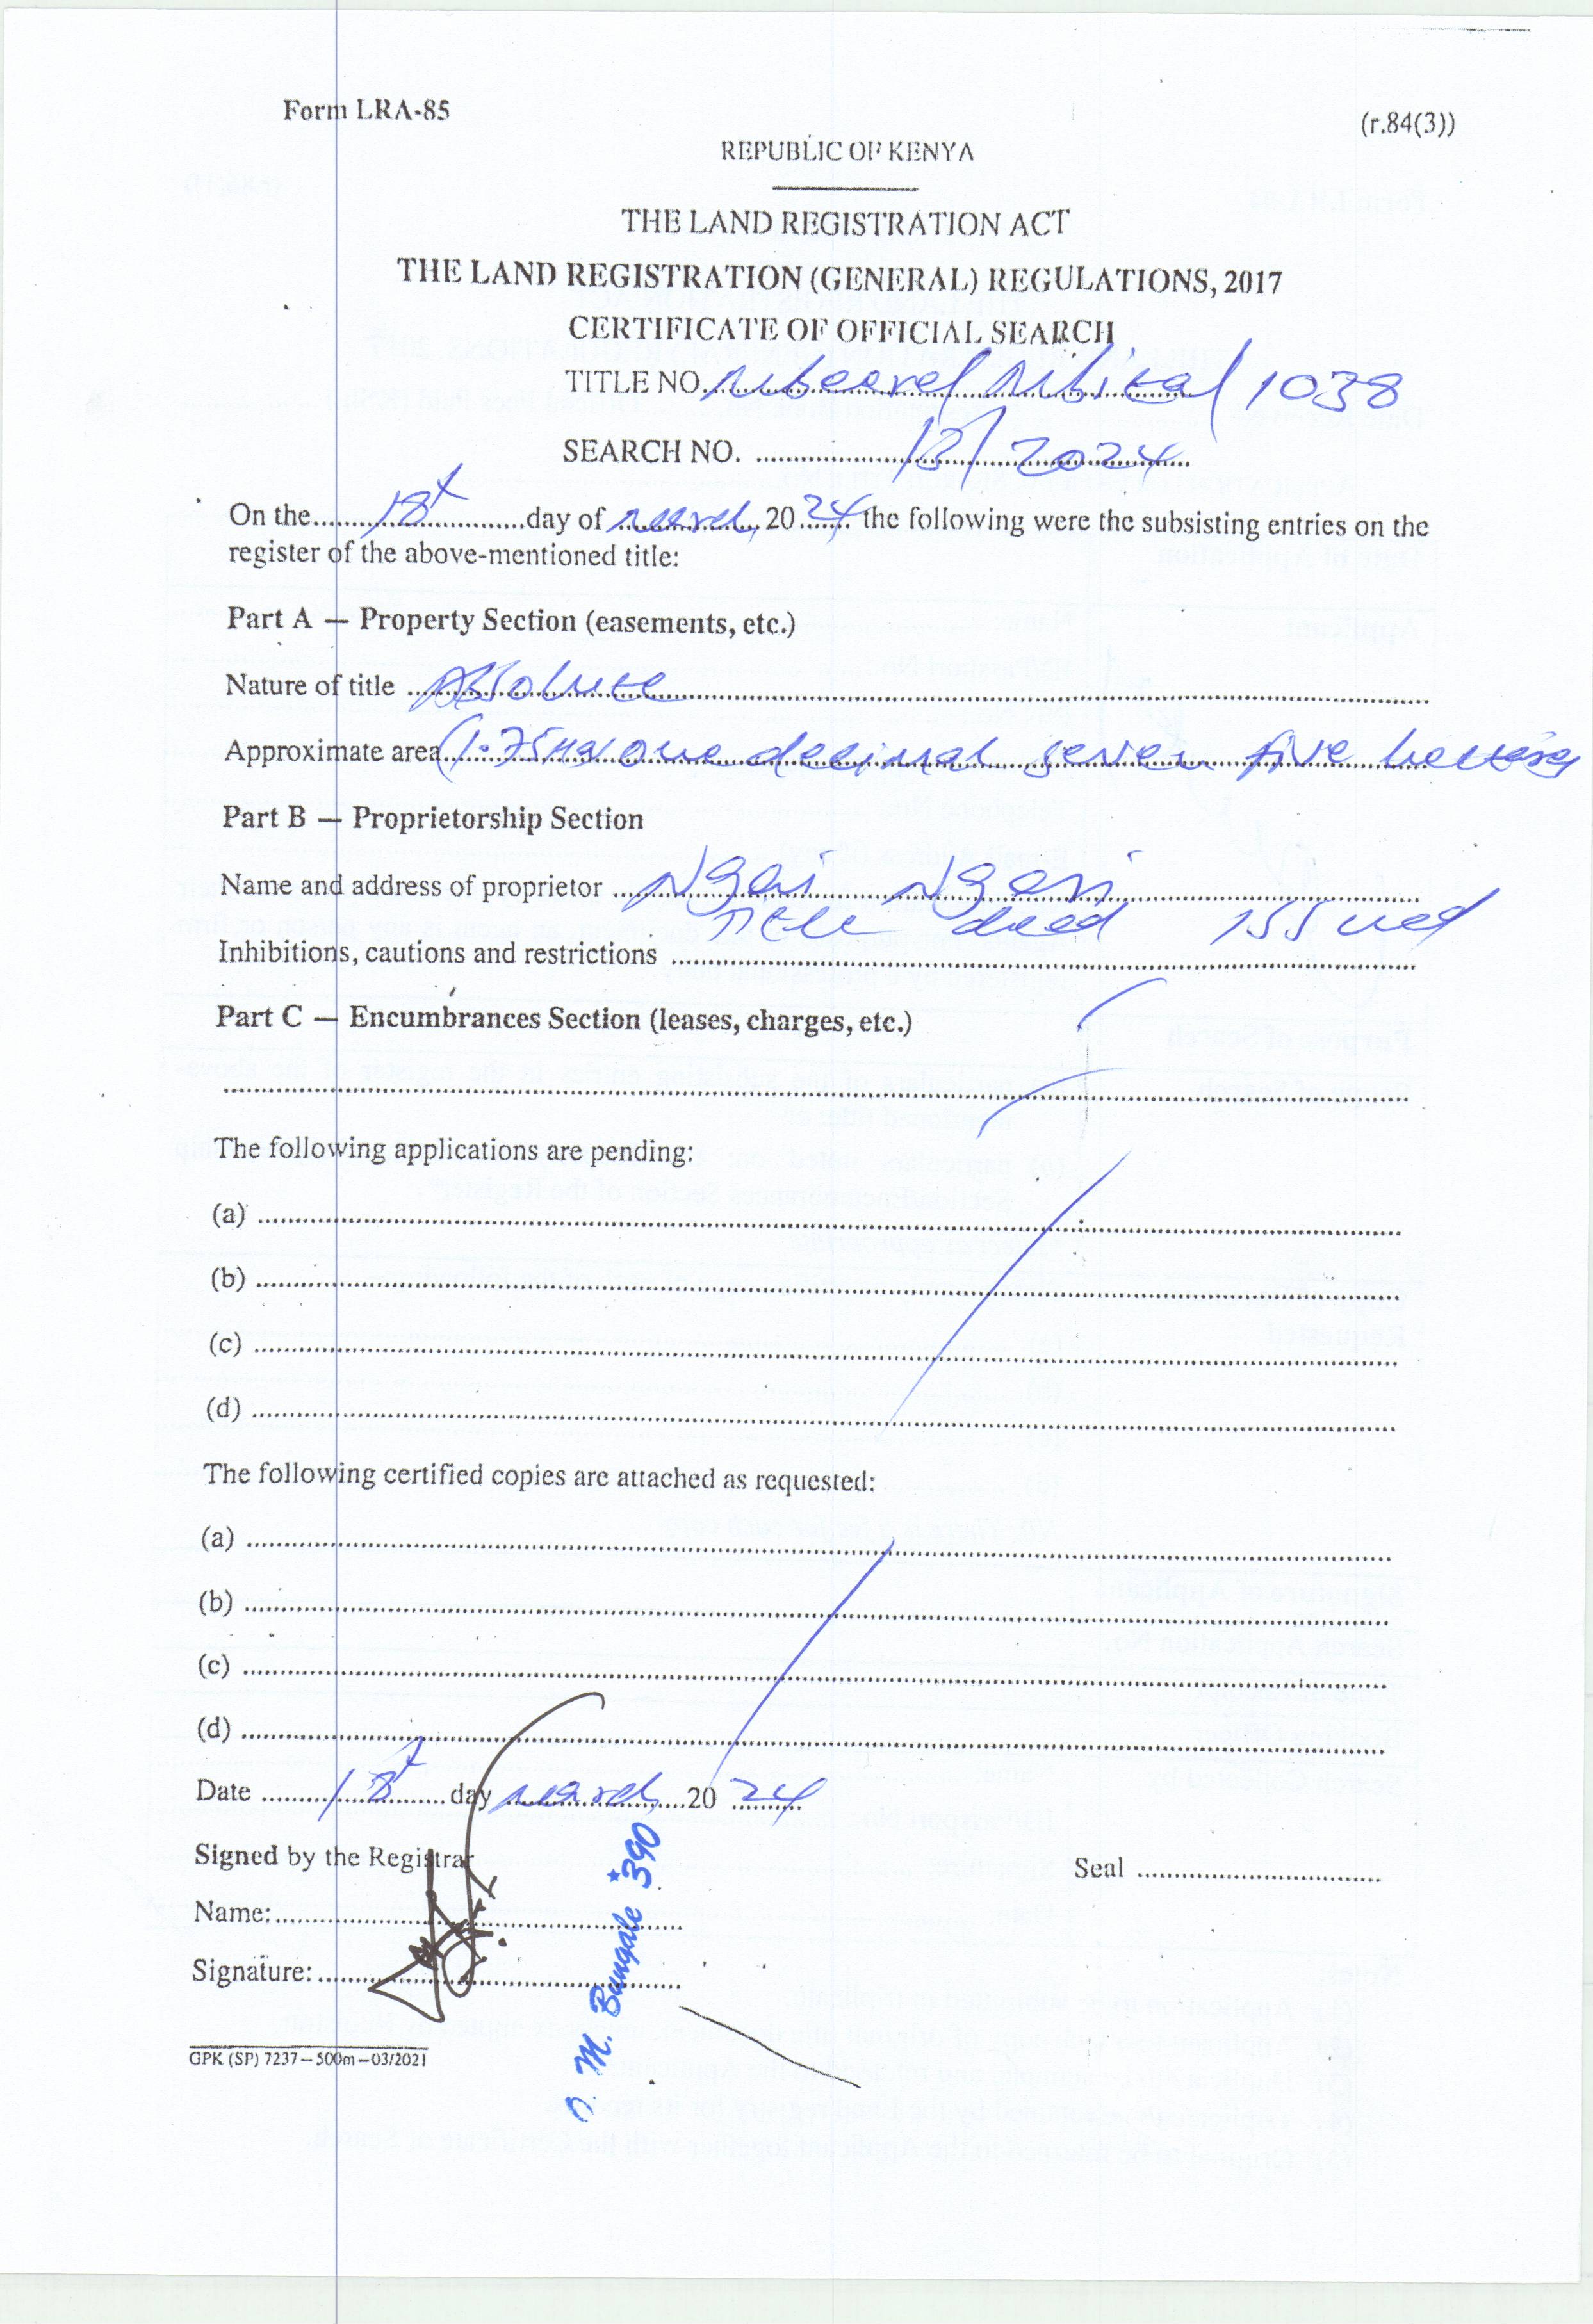 Form LRA-85
(r.84(3))
REPUBLIC OF KENYA
THE LAND REGISTRATION ACT
THE LAND REGISTRATION (GENERAL) REGULATIONS, 2017
CERTIFICATE OF OFFICIAL SEARCH
TITLE NO. / 1038
SEARCH NO. /2024
On the 18th day of March 2024 the following were the subsisting entries on the
register of the above-mentioned title:
Part A — Property Section (easements, etc.)
Nature of title Absolute
Approximate area (1.75Ha) one decimal seven five hectares
Part B — Proprietorship Section
Name and address of proprietor Ngai
Title deed issued
Inhibitions, cautions and restrictions
Part C — Encumbrances Section (leases, charges, etc.)
The following applications are pending:
(a)
(b)
(c)
(d)
The following certified copies are attached as requested:
(a)
(b)
(c)
(d)
Date 18th day March 2024
Signed by the Registrar
Seal
Name:
Signature:
M. Bungale *390
GPK (SP) 7237—500m—03/2021